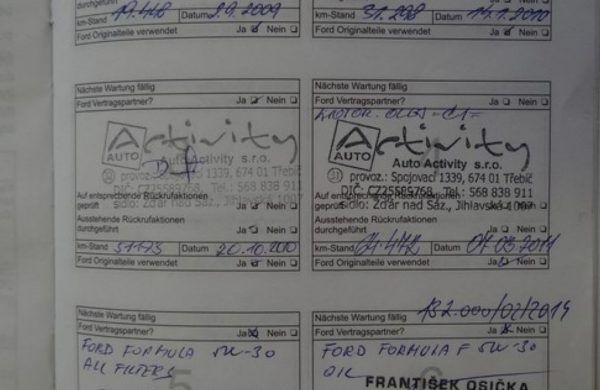 durchgeführt
km-Stand 19.448 Datum 2.9.2009
Ford Originalteile verwendet Ja Nein
km-Stand 31.298 Datum 14.1.2010
Ford Originalteile verwendet Ja Nein
Nächste Wartung fällig
Ford Vertragspartner? Ja Nein
Activity
AUTO
Auto Activity s.r.o.
provoz.: Spojovací 1339, 674 01 Třebíč
DIČ: CZ25589768, Tel.: 568 838 911
sídlo: Zďár nad Sáz., Jihlavská 1007
Auf entsprechende Rückrufaktionen
geprüft Ja Nein
Ausstehende Rückrufaktionen
durchgeführt Ja Nein
km-Stand 51173 Datum 20.10.2010
Ford Originalteile verwendet Ja Nein
Nächste Wartung fällig
Ford Vertragspartner? Ja Nein
Activity
AUTO
Auto Activity s.r.o.
provoz.: Spojovací 1339, 674 01 Třebíč
DIČ: CZ25589768, Tel.: 568 838 911
sídlo: Zďár nad Sáz., Jihlavská 1007
Auf entsprechende Rückrufaktionen
geprüft Nein
Ausstehende Rückrufaktionen
durchgeführt Ja Nein
km-Stand Datum
Ford Originalteile verwendet Ja Nein
Nächste Wartung fällig
Ford Vertragspartner? Ja Nein
FORD FORMULA 5W-30
ALL FILTERS
5
Nächste Wartung fällig 132.000/02/2014
Ford Vertragspartner? Ja Nein
FORD FORMULA F 5W-30
OIL
FRANTIŠEK OSIČKA